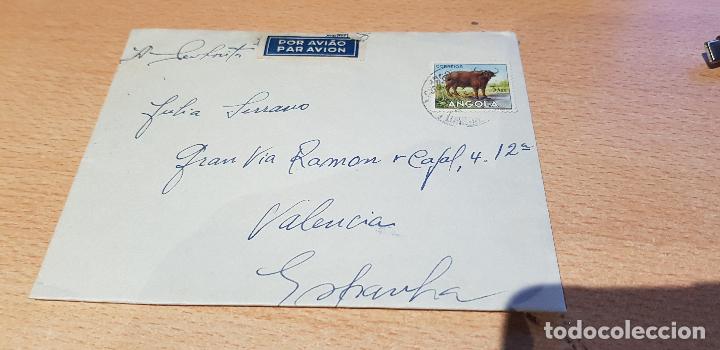 POR AVIÃO
PAR AVION
CORREIOS
ANGOLA
Julia Serrano
Gran Via Ramon y Cajal, 4. 12ª
Valencia
Espanha
todocoleccion